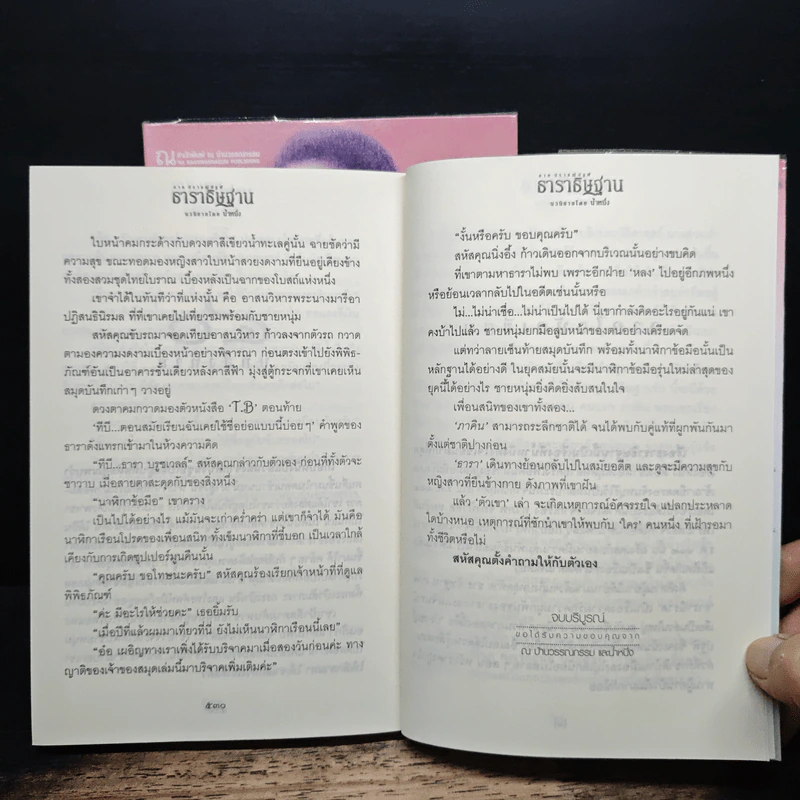 ณ
ธาราธิษฐาน
นวนิยายโดย น้ำหนึ่ง
ใบหน้าคมกระด้างกับดวงตาสีเขียวน้ำทะเลคู่นั้น ฉายชัดว่ามี
ความสุข ขณะทอดมองหญิงสาวใบหน้าสวยงดงามที่ยืนอยู่เคียงข้าง
ทั้งสองสวมชุดไทยโบราณ เบื้องหลังเป็นฉากของโบสถ์แห่งหนึ่ง
เขาจำได้ในทันทีว่าที่แห่งนั้น คือ อาสนวิหารพระนางมารีอา
ปฏิสนธินิรมล ที่ที่เขาเคยไปเที่ยวชมพร้อมกับชายหนุ่ม
สหัสคุณขับรถมาจอดเทียบอาสนวิหาร ก้าวลงจากตัวรถ กวาด
ตามองความงดงามเบื้องหน้าอย่างพิจารณา ก่อนตรงเข้าไปยังพิพิธ-
ภัณฑ์อันเป็นอาคารชั้นเดียวหลังคาสีฟ้า มุ่งสู่ตู้กระจกที่เขาเคยเห็น
สมุดบันทึกเก่าๆ วางอยู่
ดวงตาคมกวาดมองตัวหนังสือ ‘T.B’ ตอนท้าย
‘ทีบี...ตอนสมัยเรียนฉันเคยใช้ชื่อย่อแบบนี้บ่อยๆ’ คำพูดของ
ธาราดังแทรกเข้ามาในห้วงความคิด
“ทีบี...ธารา บรูซเวลล์” สหัสคุณกล่าวกับตัวเอง ก่อนที่ทั้งตัวจะ
ชาวาบ เมื่อสายตาสะดุดกับของสิ่งหนึ่ง
“นาฬิกาข้อมือ” เขาคราง
เป็นไปได้อย่างไร แม้มันจะเก่าคร่ำคร่า แต่เขาก็จำได้ มันคือ
นาฬิกาเรือนโปรดของเพื่อนสนิท ทั้งเข็มนาฬิกาที่ชี้บอก เป็นเวลาใกล้
เคียงกับการเกิดซุปเปอร์มูนคืนนั้น
“คุณครับ ขอโทษนะครับ” สหัสคุณร้องเรียกเจ้าหน้าที่ที่ดูแล
พิพิธภัณฑ์
“ค่ะ มีอะไรให้ช่วยคะ” เธอยิ้มรับ
“เมื่อปีที่แล้วผมมาเที่ยวที่นี่ ยังไม่เห็นนาฬิกาเรือนนี้เลย”
“อ๋อ เผอิญทางเราเพิ่งได้รับบริจาคมาเมื่อสองวันก่อนค่ะ ทาง
ญาติของเจ้าของสมุดเล่มนี้มาบริจาคเพิ่มเติมค่ะ”
๕๓๐
ธาราธิษฐาน
นวนิยายโดย น้ำหนึ่ง
“งั้นหรือครับ ขอบคุณครับ”
สหัสคุณนิ่งอึ้ง ก้าวเดินออกจากบริเวณนั้นอย่างขบคิด
ที่เขาตามหาธาราไม่พบ เพราะอีกฝ่าย ‘หลง’ ไปอยู่อีกภพหนึ่ง
หรือย้อนเวลากลับไปในอดีตเช่นนั้นหรือ
ไม่...ไม่น่าเชื่อ...ไม่น่าเป็นไปได้ นี่เขากำลังคิดอะไรอยู่กันแน่ เขา
คงบ้าไปแล้ว ชายหนุ่มยกมือลูบหน้าของตนอย่างเครียดจัด
แต่ทว่าลายเซ็นท้ายสมุดบันทึก พร้อมทั้งนาฬิกาข้อมือนั้นเป็น
หลักฐานได้อย่างดี ในยุคสมัยนั้นจะมีนาฬิกาข้อมือรุ่นใหม่ล่าสุดของ
ยุคนี้ได้อย่างไร ชายหนุ่มยิ่งคิดยิ่งสับสนในใจ
เพื่อนสนิทของเขาทั้งสอง...
‘ภาคิน’ สามารถระลึกชาติได้ จนได้พบกับคู่แท้ที่ผูกพันกันมา
ตั้งแต่ชาติปางก่อน
‘ธารา’ เดินทางย้อนกลับไปในสมัยอดีต และดูจะมีความสุขกับ
หญิงสาวที่ยืนข้างกาย ดังภาพที่เขาฝัน
แล้ว ‘ตัวเขา’ เล่า จะเกิดเหตุการณ์อัศจรรย์ใจ แปลกประหลาด
ใดบ้างหนอ เหตุการณ์ที่ชักนำเขาให้พบกับ ‘ใคร’ คนหนึ่ง ที่เฝ้ารอมา
ทั้งชีวิตหรือไม่
สหัสคุณตั้งคำถามให้กับตัวเอง
จบบริบูรณ์
ขอได้รับความขอบคุณจาก
ณ บ้านวรรณกรรม และน้ำหนึ่ง